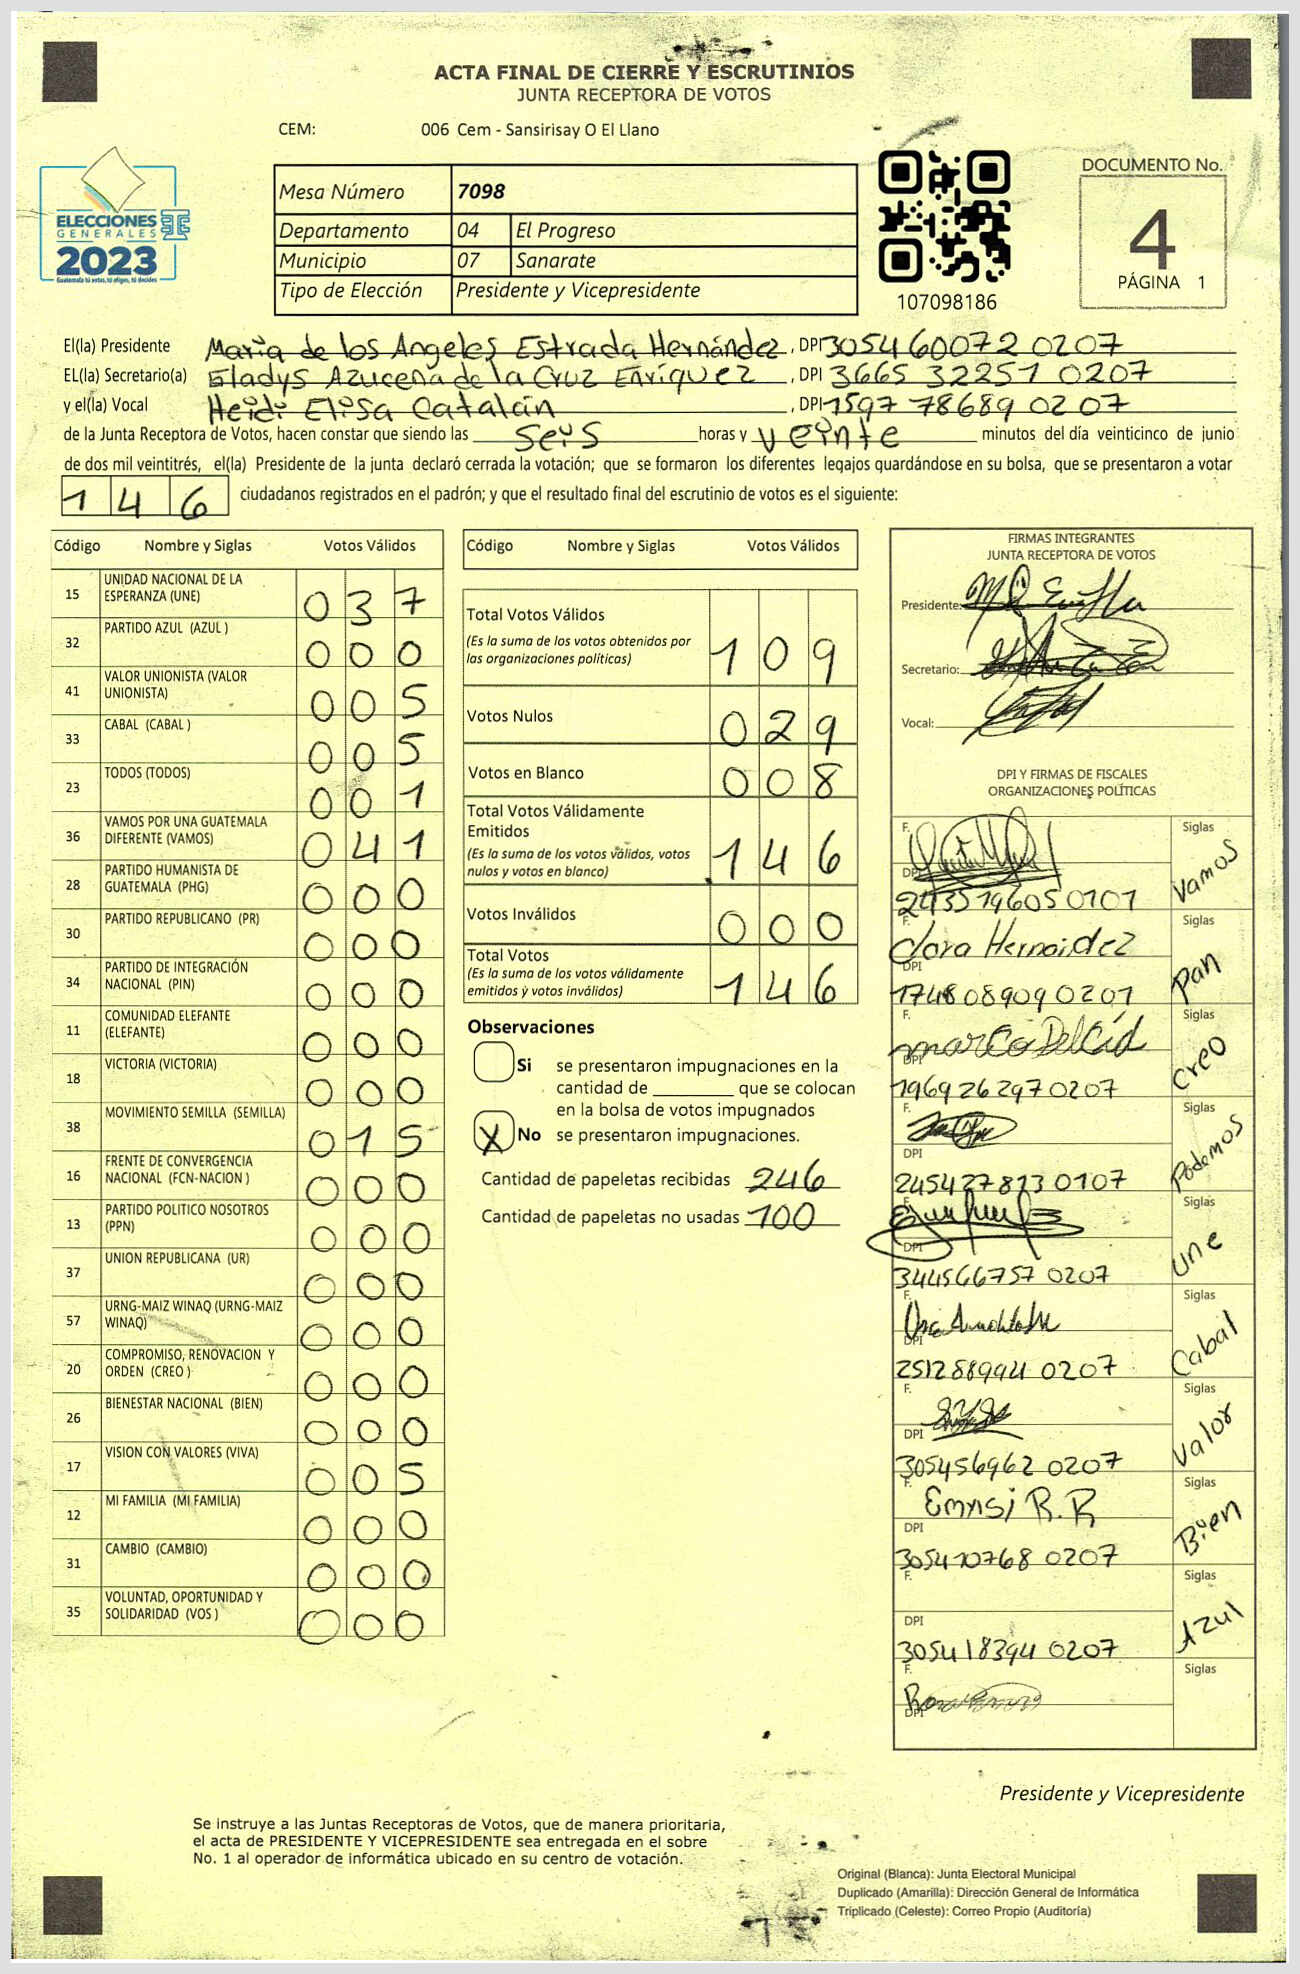 ACTA FINAL DE CIERRE Y ESCRUTINIOS
JUNTA RECEPTORA DE VOTOS
CEM: 006 Cem - Sansirisay O El Llano
ELECCIONES
GENERALES
2023
Guatemala tú votas, tú eliges, tú decides
Mesa Número 7098
Departamento 04 El Progreso
Municipio 07 Sanarate
Tipo de Elección Presidente y Vicepresidente
107098186
DOCUMENTO No.
4
PÁGINA 1
El(la) Presidente Maria de los Angeles Estrada Hernández, DPI 3054 60072 0207
EL(la) Secretario(a) Gladys Azucena de la Cruz Enríquez, DPI 3665 32251 0207
y el(la) Vocal Heidi Elisa Catalán, DPI 1597 78689 0207
de la Junta Receptora de Votos, hacen constar que siendo las seis horas y veinte minutos del día veinticinco de junio
de dos mil veintitrés, el(la) Presidente de la junta declaró cerrada la votación; que se formaron los diferentes legajos guardándose en su bolsa, que se presentaron a votar
146 ciudadanos registrados en el padrón; y que el resultado final del escrutinio de votos es el siguiente:
Código Nombre y Siglas Votos Válidos
15 UNIDAD NACIONAL DE LA ESPERANZA (UNE) 037
32 PARTIDO AZUL (AZUL ) 000
41 VALOR UNIONISTA (VALOR UNIONISTA) 005
33 CABAL (CABAL ) 005
23 TODOS (TODOS) 001
36 VAMOS POR UNA GUATEMALA DIFERENTE (VAMOS) 041
28 PARTIDO HUMANISTA DE GUATEMALA (PHG) 000
30 PARTIDO REPUBLICANO (PR) 000
34 PARTIDO DE INTEGRACIÓN NACIONAL (PIN) 000
11 COMUNIDAD ELEFANTE (ELEFANTE) 000
18 VICTORIA (VICTORIA) 000
38 MOVIMIENTO SEMILLA (SEMILLA) 015
16 FRENTE DE CONVERGENCIA NACIONAL (FCN-NACION ) 000
13 PARTIDO POLITICO NOSOTROS (PPN) 000
37 UNION REPUBLICANA (UR) 000
57 URNG-MAIZ WINAQ (URNG-MAIZ WINAQ) 000
20 COMPROMISO, RENOVACION Y ORDEN (CREO ) 000
26 BIENESTAR NACIONAL (BIEN) 000
17 VISION CON VALORES (VIVA) 005
12 MI FAMILIA (MI FAMILIA) 000
31 CAMBIO (CAMBIO) 000
35 VOLUNTAD, OPORTUNIDAD Y SOLIDARIDAD (VOS ) 000
Código Nombre y Siglas Votos Válidos
Total Votos Válidos 109
(Es la suma de los votos obtenidos por
las organizaciones políticas)
Votos Nulos 029
Votos en Blanco 008
Total Votos Válidamente
Emitidos 146
(Es la suma de los votos válidos, votos
nulos y votos en blanco)
Votos Inválidos 000
Total Votos 146
(Es la suma de los votos válidamente
emitidos y votos inválidos)
Observaciones
Si se presentaron impugnaciones en la
cantidad de ________ que se colocan
en la bolsa de votos impugnados
X No se presentaron impugnaciones.
Cantidad de papeletas recibidas 246
Cantidad de papeletas no usadas 100
FIRMAS INTEGRANTES
JUNTA RECEPTORA DE VOTOS
Presidente:
Secretario:
Vocal:
DPI Y FIRMAS DE FISCALES
ORGANIZACIONES POLÍTICAS
F. Siglas Vamos
DPI 2435196050101
F. Clara Hernández Siglas Pan
DPI 1748089090201
F. Marco Del Cid Siglas Creo
DPI 1969262970207
F. Siglas Podemos
DPI 2454278130107
F. Siglas Une
DPI 344566757 0207
F. Siglas Cabal
DPI 251288994 0207
F. Siglas Valor
DPI 305456962 0207
F. Emnsi R.R Siglas Bien
DPI 305410768 0207
F. Siglas Azul
DPI 305418394 0207
F. Siglas
DPI
Presidente y Vicepresidente
Se instruye a las Juntas Receptoras de Votos, que de manera prioritaria,
el acta de PRESIDENTE Y VICEPRESIDENTE sea entregada en el sobre
No. 1 al operador de informática ubicado en su centro de votación.
Original (Blanca): Junta Electoral Municipal
Duplicado (Amarilla): Dirección General de Informática
Triplicado (Celeste): Correo Propio (Auditoría)